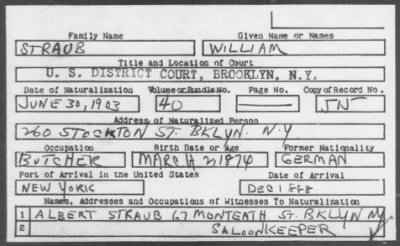 Family Name Given Name or Names
STRAUB WILLIAM
Title and Location of Court
U. S. DISTRICT COURT, BROOKLYN, N.Y.
Date of Naturalization Volume or Bundle No. Page No. Copy of Record No.
JUNE 30, 1903 40 JN
Address of Naturalized Person
260 STOCKTON ST. BKLYN. N.Y
Occupation Birth Date or Age Former Nationality
BUTCHER MARCH 2 1874 GERMAN
Port of Arrival in the United States Date of Arrival
NEW YORK DEC 1888
Names, Addresses and Occupations of Witnesses To Naturalization
1 ALBERT STRAUB 67 MONTEATH ST. BKLYN NY
2 SALOONKEEPER